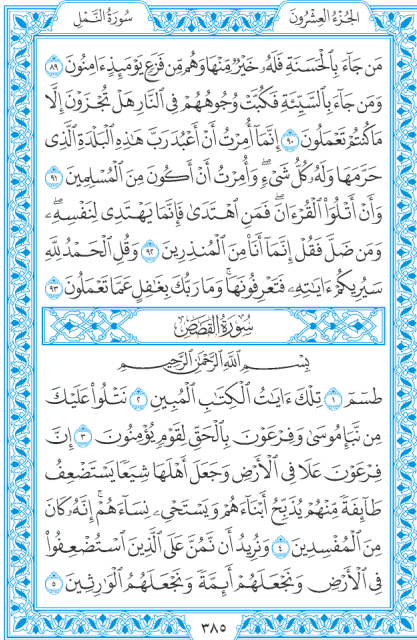 سُورَةُ النَّمۡلِ الجُزۡءُ العِشۡرُونَ
مَن جَآءَ بِٱلۡحَسَنَةِ فَلَهُۥ خَيۡرٞ مِّنۡهَا وَهُم مِّن فَزَعٖ يَوۡمَئِذٍ ءَامِنُونَ ٨٩
وَمَن جَآءَ بِٱلسَّيِّئَةِ فَكُبَّتۡ وُجُوهُهُمۡ فِي ٱلنَّارِ هَلۡ تُجۡزَوۡنَ إِلَّا
مَا كُنتُمۡ تَعۡمَلُونَ ٩٠ إِنَّمَآ أُمِرۡتُ أَنۡ أَعۡبُدَ رَبَّ هَٰذِهِ ٱلۡبَلۡدَةِ ٱلَّذِي
حَرَّمَهَا وَلَهُۥ كُلُّ شَيۡءٖۖ وَأُمِرۡتُ أَنۡ أَكُونَ مِنَ ٱلۡمُسۡلِمِينَ ٩١
وَأَنۡ أَتۡلُوَاْ ٱلۡقُرۡءَانَۖ فَمَنِ ٱهۡتَدَىٰ فَإِنَّمَا يَهۡتَدِي لِنَفۡسِهِۦۖ
وَمَن ضَلَّ فَقُلۡ إِنَّمَآ أَنَا۠ مِنَ ٱلۡمُنذِرِينَ ٩٢ وَقُلِ ٱلۡحَمۡدُ لِلَّهِ
سَيُرِيكُمۡ ءَايَٰتِهِۦ فَتَعۡرِفُونَهَاۚ وَمَا رَبُّكَ بِغَٰفِلٍ عَمَّا تَعۡمَلُونَ ٩٣
سُورَةُ القَصَصِ
بِسۡمِ ٱللَّهِ ٱلرَّحۡمَٰنِ ٱلرَّحِيمِ
طسٓمٓ ١ تِلۡكَ ءَايَٰتُ ٱلۡكِتَٰبِ ٱلۡمُبِينِ ٢ نَتۡلُواْ عَلَيۡكَ
مِن نَّبَإِ مُوسَىٰ وَفِرۡعَوۡنَ بِٱلۡحَقِّ لِقَوۡمٖ يُؤۡمِنُونَ ٣ إِنَّ
فِرۡعَوۡنَ عَلَا فِي ٱلۡأَرۡضِ وَجَعَلَ أَهۡلَهَا شِيَعٗا يَسۡتَضۡعِفُ
طَآئِفَةٗ مِّنۡهُمۡ يُذَبِّحُ أَبۡنَآءَهُمۡ وَيَسۡتَحۡيِۦ نِسَآءَهُمۡۚ إِنَّهُۥ كَانَ
مِنَ ٱلۡمُفۡسِدِينَ ٤ وَنُرِيدُ أَن نَّمُنَّ عَلَى ٱلَّذِينَ ٱسۡتُضۡعِفُواْ
فِي ٱلۡأَرۡضِ وَنَجۡعَلَهُمۡ أَئِمَّةٗ وَنَجۡعَلَهُمُ ٱلۡوَٰرِثِينَ ٥
٣٨٥